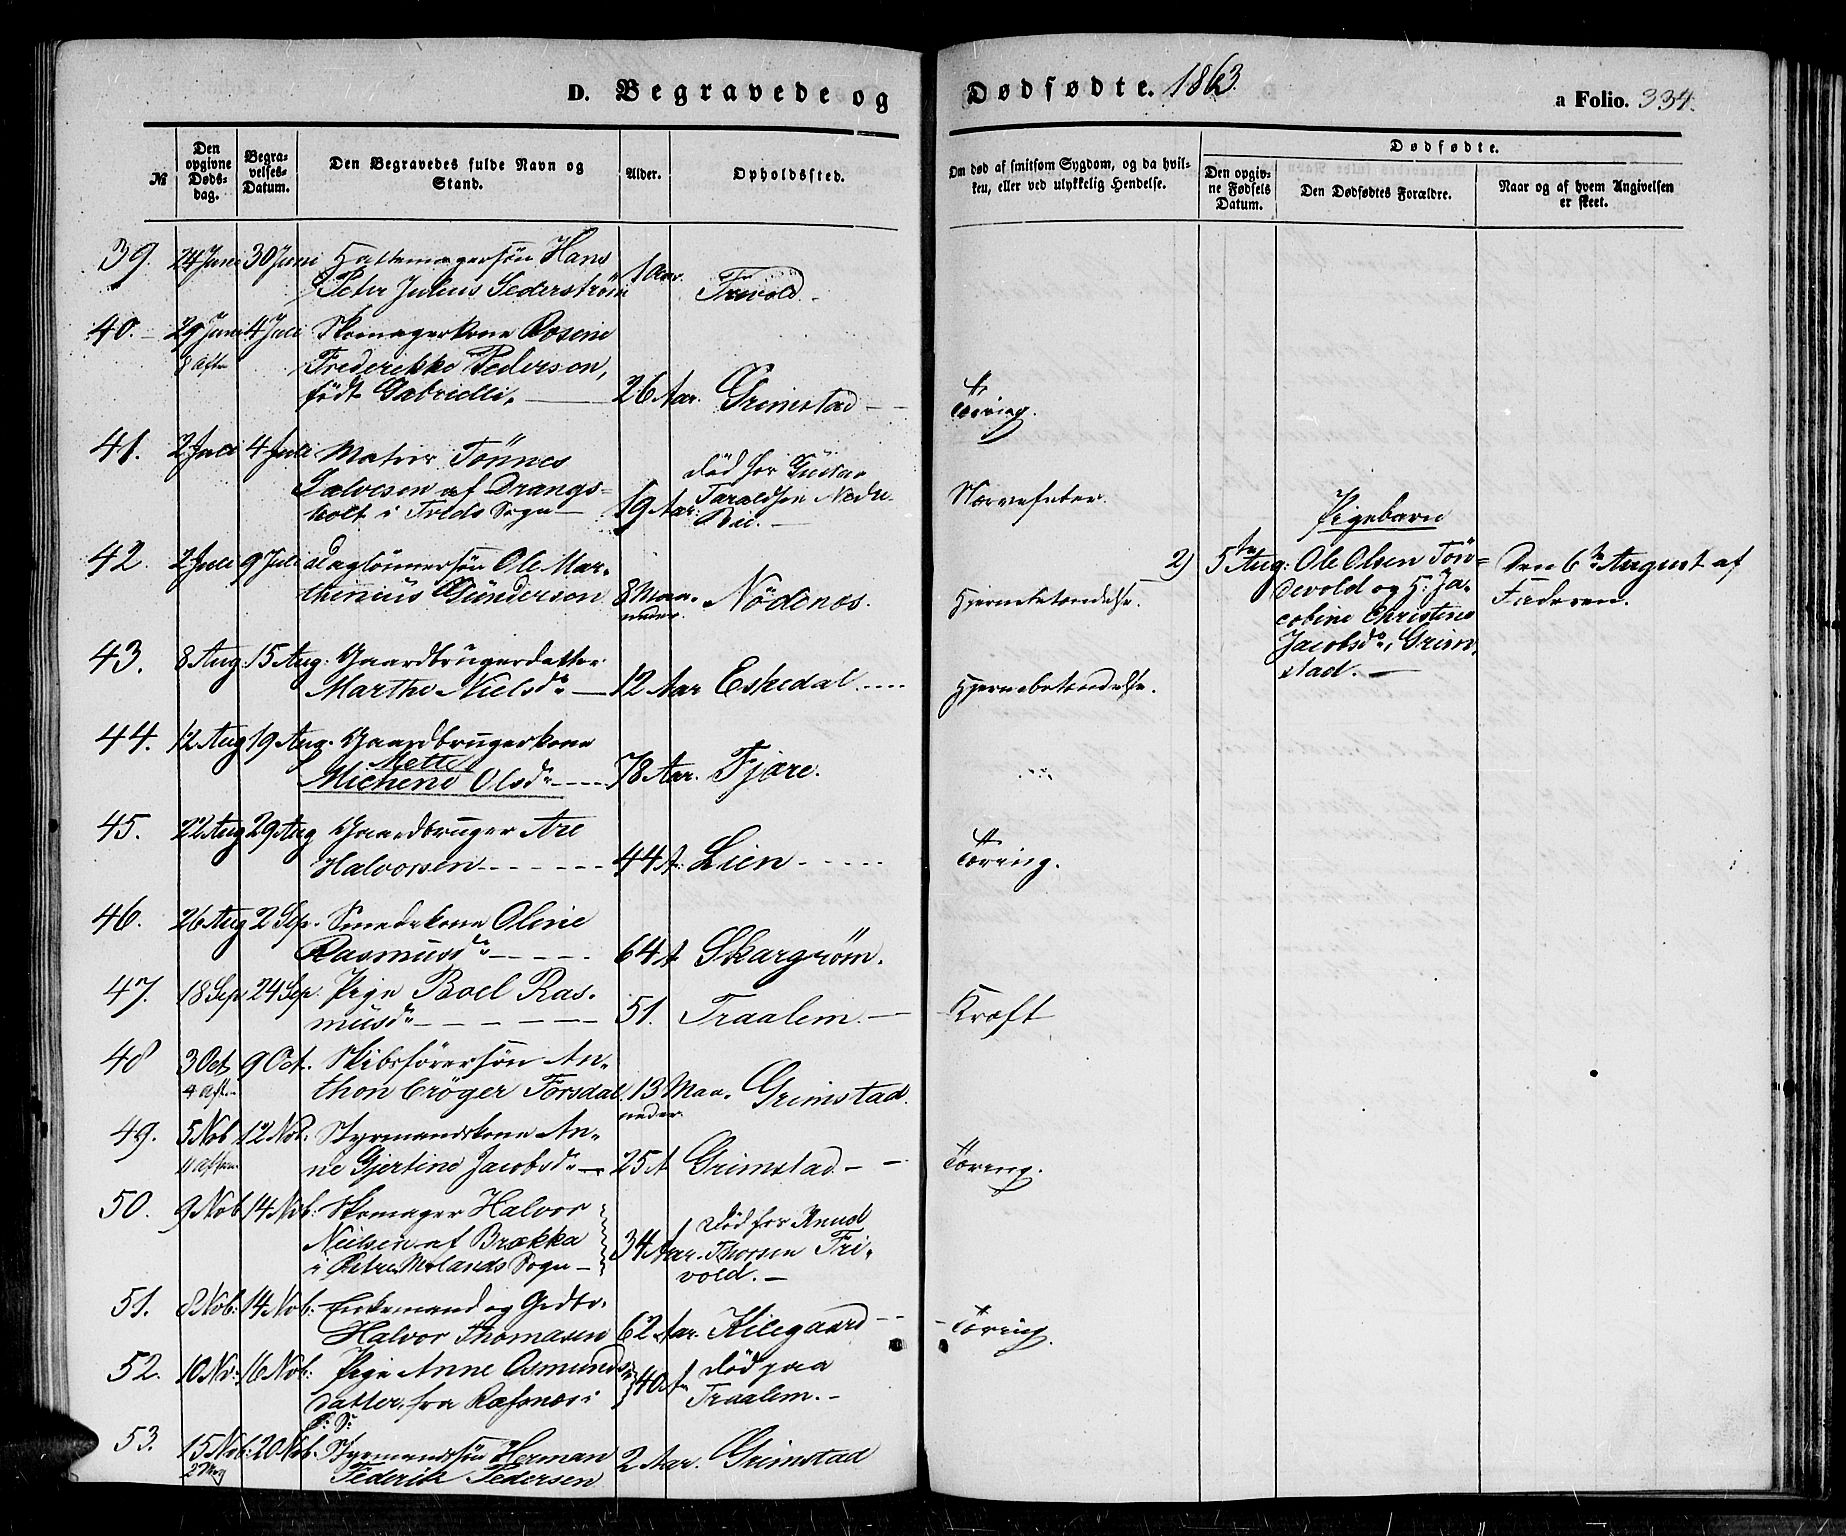 D. Begravede og Dødfødte. 1863.
a Folio. 334.
№
Den opgivne Dødsdag.
Begravelses-Datum.
Den Begravedes fulde Navn og Stand.
Alder.
Opholdssted.
Om død af smitsom Sygdom, og da hvilken, eller ved ulykkelig Hendelse.
Dødfødte.
Den opgivne Fødsels Datum.
Den Dødfødtes Forældre.
Naar og af hvem Angivelsen er skeet.
39. 24 Juni 30 Juni Hattemagersøn Hans
Peter Julius Sederstrøm 1 Aar. Frivold.
40. 29 Juni 4 Juli Skomagerkone Rosine
8 Aften Frederikke Pederson,
født Gabrielli. 26 Aar. Grimstad Tæring.
41. 2 Juli 4 Juli Matros Tönnes
Salvesen af Drangs-
holt i Treds Sogn 19 Aar. død hos
Taraldsen Nedre
Bie. Nervefeber.
42. 2 Juli 9 Juli Daglönnersön Ole Mar-
thinius Gunderson 8 Maa-
neder. Nödenes. Hjernebetændelse.
Pigebarn
2) 5te Aug: Ole Olsen Tön-
devold og H: Ja-
cobine Christine
Jacobsdr, Grim-
stad.
Den 6te August af
Faderen.
43. 8 Aug: 15 Aug: Gaardbrugerdatter
Marthe Nielsdr 12 Aar Eskedal Hjernebetændelse.
44. 12 Aug 19 Aug. Gaardbrugerkone
Mette
Michene Olsdr 78 Aar. Fjære.
45. 22 Aug 29 Aug Gaardbruger Are
Halvorsen 44 A: Lien Tæring.
46. 26 Aug 2 Sep. Smedekone Oline
Rasmusdr 64 A Skargrøm.
47. 18 Sep. 24 Sep: Pige Boel Ras-
musdr 51. Traalem. Kræft
48 3 Oct 9 Oct. Skibsförersön An-
4 Aft. thon Cröger Forsdal 13 Maa-
neder. Grimstad.
49. 5 Nob 12 Nob: Styrmandskone An-
11 Aften ne Gjertine Jacobsdr 25 A Grimstad Tæring.
50. 9 Nob 14 Nob: Skomager Halvor
Nielsen af Brækka
i Østre Molands Sogn 34 Aar. Död hos Knud
Thorsen Fri-
vold.
51. 8 Nob: 14 Nob: Enkemand og
Halvor Thomasen 62 Aar. Kilegaard Tæring.
52. 10 No: 16 Nob: Pige Anne Osmunds-
datter, fra Ræfsnæs i
Ø: S: 40 A Död paa
Traalem.
53. 15 Nob: 20 Nob. Styrmandssön Herman
Federik Pedersen 2 Aar. Grimstad